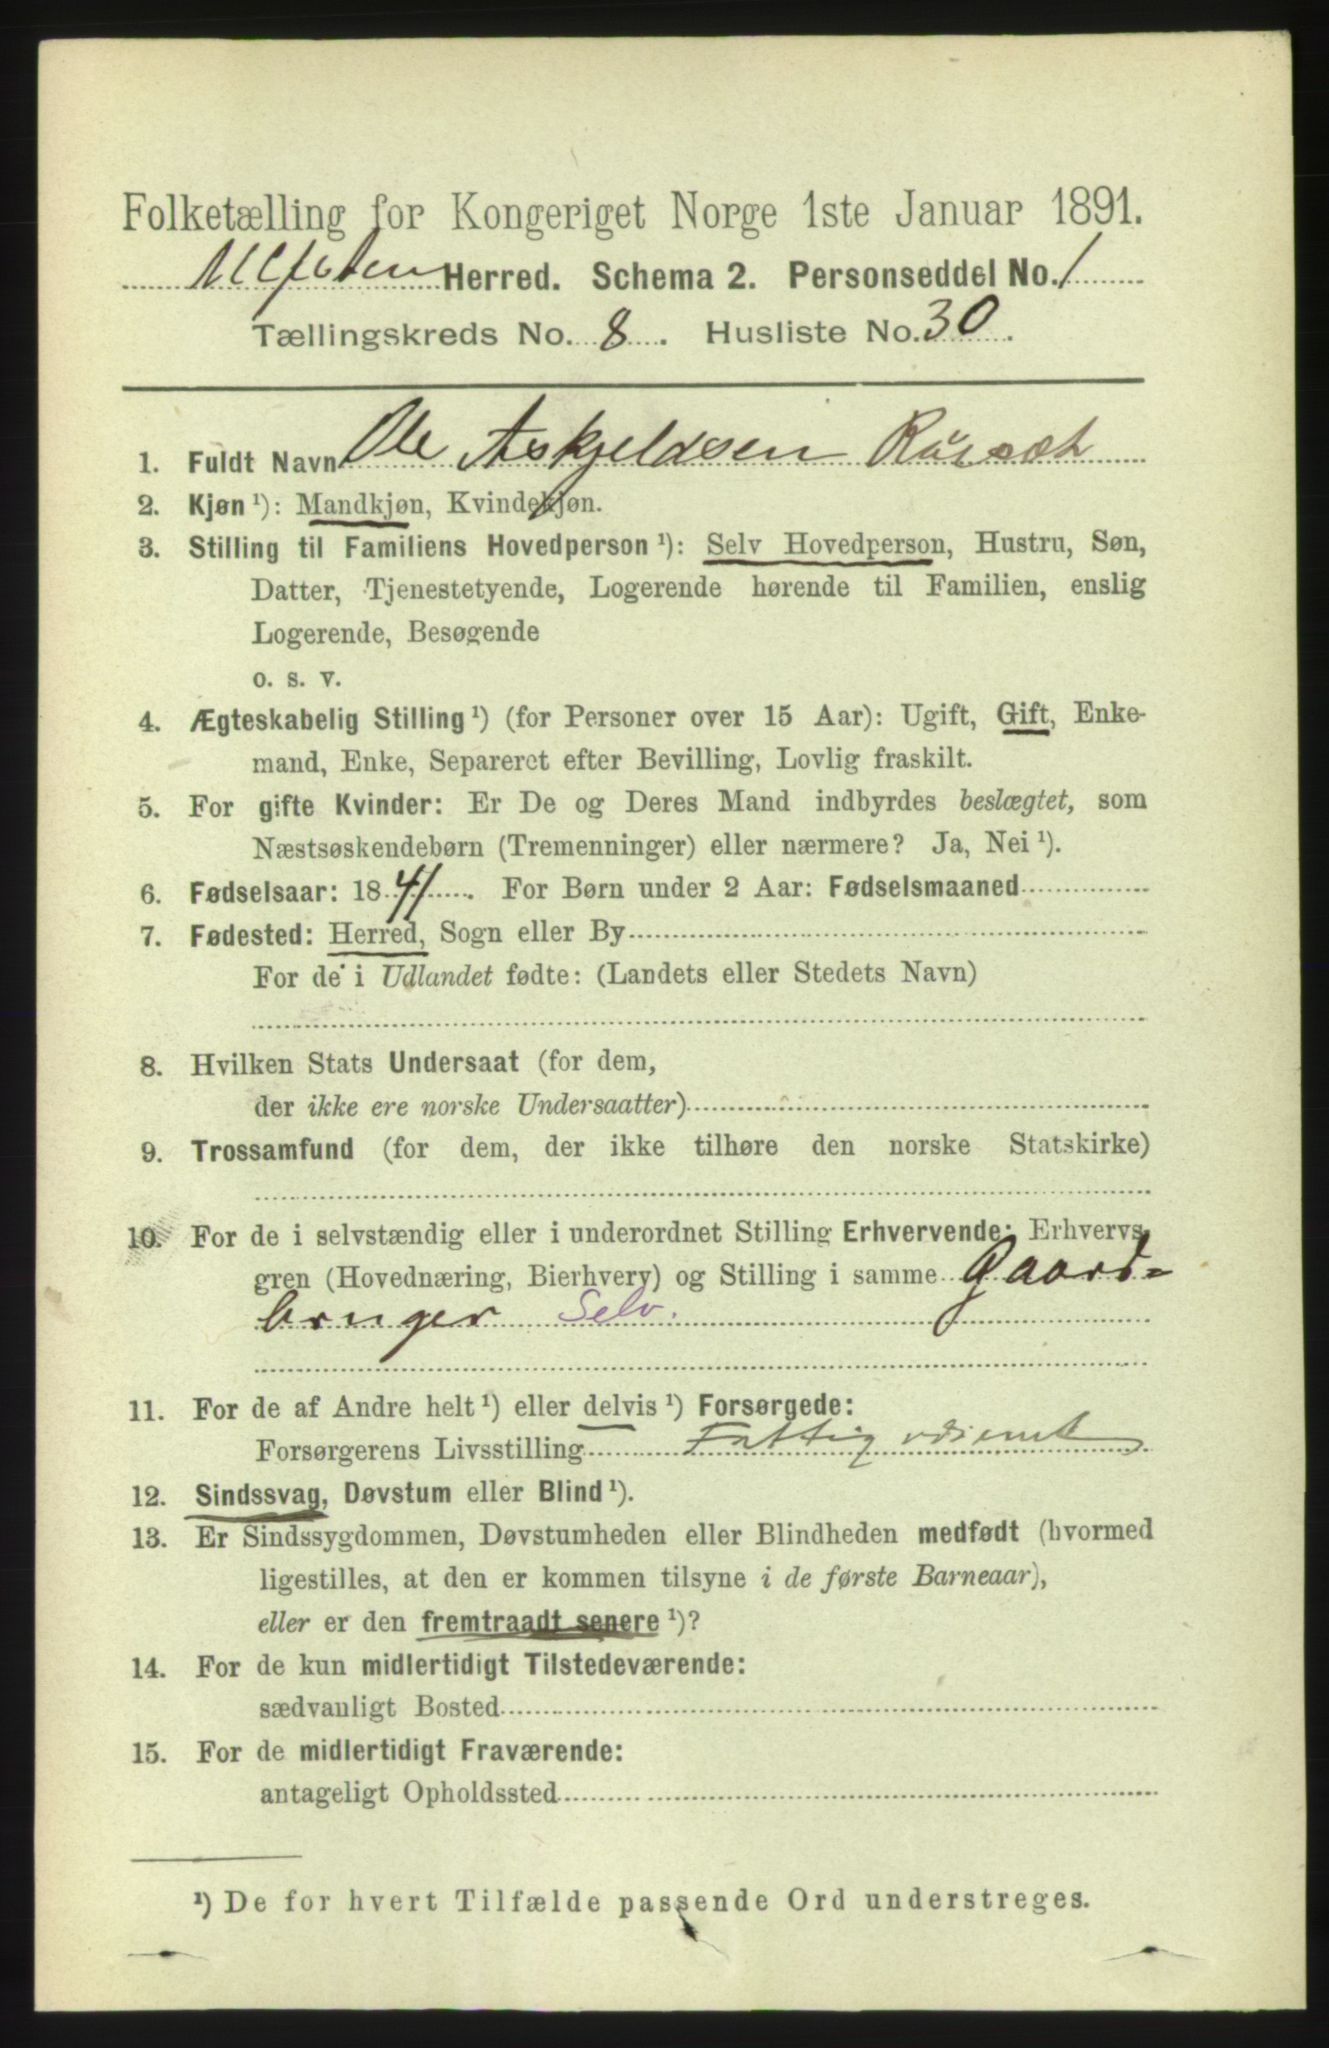 Folketælling for Kongeriget Norge 1ste Januar 1891.
Herred. Schema 2. Personseddel No. 1
Tællingskreds No. 8. Husliste No. 30.
1. Fuldt Navn Ole Askjeldsen
2. Kjøn ¹): Mandkjøn, Kvindekjøn.
3. Stilling til Familiens Hovedperson ¹): Selv Hovedperson, Hustru, Søn,
Datter, Tjenestetyende, Logerende hørende til Familien, enslig
Logerende, Besøgende
o. s. v.
4. Ægteskabelig Stilling ¹) (for Personer over 15 Aar): Ugift, Gift, Enke-
mand, Enke, Separeret efter Bevilling, Lovlig fraskilt.
5. For gifte Kvinder: Er De og Deres Mand indbyrdes beslægtet, som
Næstsøskendebørn (Tremenninger) eller nærmere? Ja, Nei ¹).
6. Fødselsaar: 1841. For Børn under 2 Aar: Fødselsmaaned
7. Fødested: Herred, Sogn eller By
For de i Udlandet fødte: (Landets eller Stedets Navn)
8. Hvilken Stats Undersaat (for dem,
der ikke ere norske Undersaatter)
9. Trossamfund (for dem, der ikke tilhøre den norske Statskirke)
10. For de i selvstændig eller i underordnet Stilling Erhvervende: Erhvervs
gren (Hovednæring, Bierhverv) og Stilling i samme Gaard-
bruger Selv.
11. For de af Andre helt ¹) eller delvis ¹) Forsørgede:
Forsørgerens Livsstilling Fattig
12. Sindssvag, Døvstum eller Blind ¹).
13. Er Sindssygdommen, Døvstumheden eller Blindheden medfødt (hvormed
ligestilles, at den er kommen tilsyne i de første Barneaar),
eller er den fremtraadt senere ¹)?
14. For de kun midlertidigt Tilstedeværende:
sædvanligt Bosted
15. For de midlertidigt Fraværende:
antageligt Opholdssted
¹) De for hvert Tilfælde passende Ord understreges.